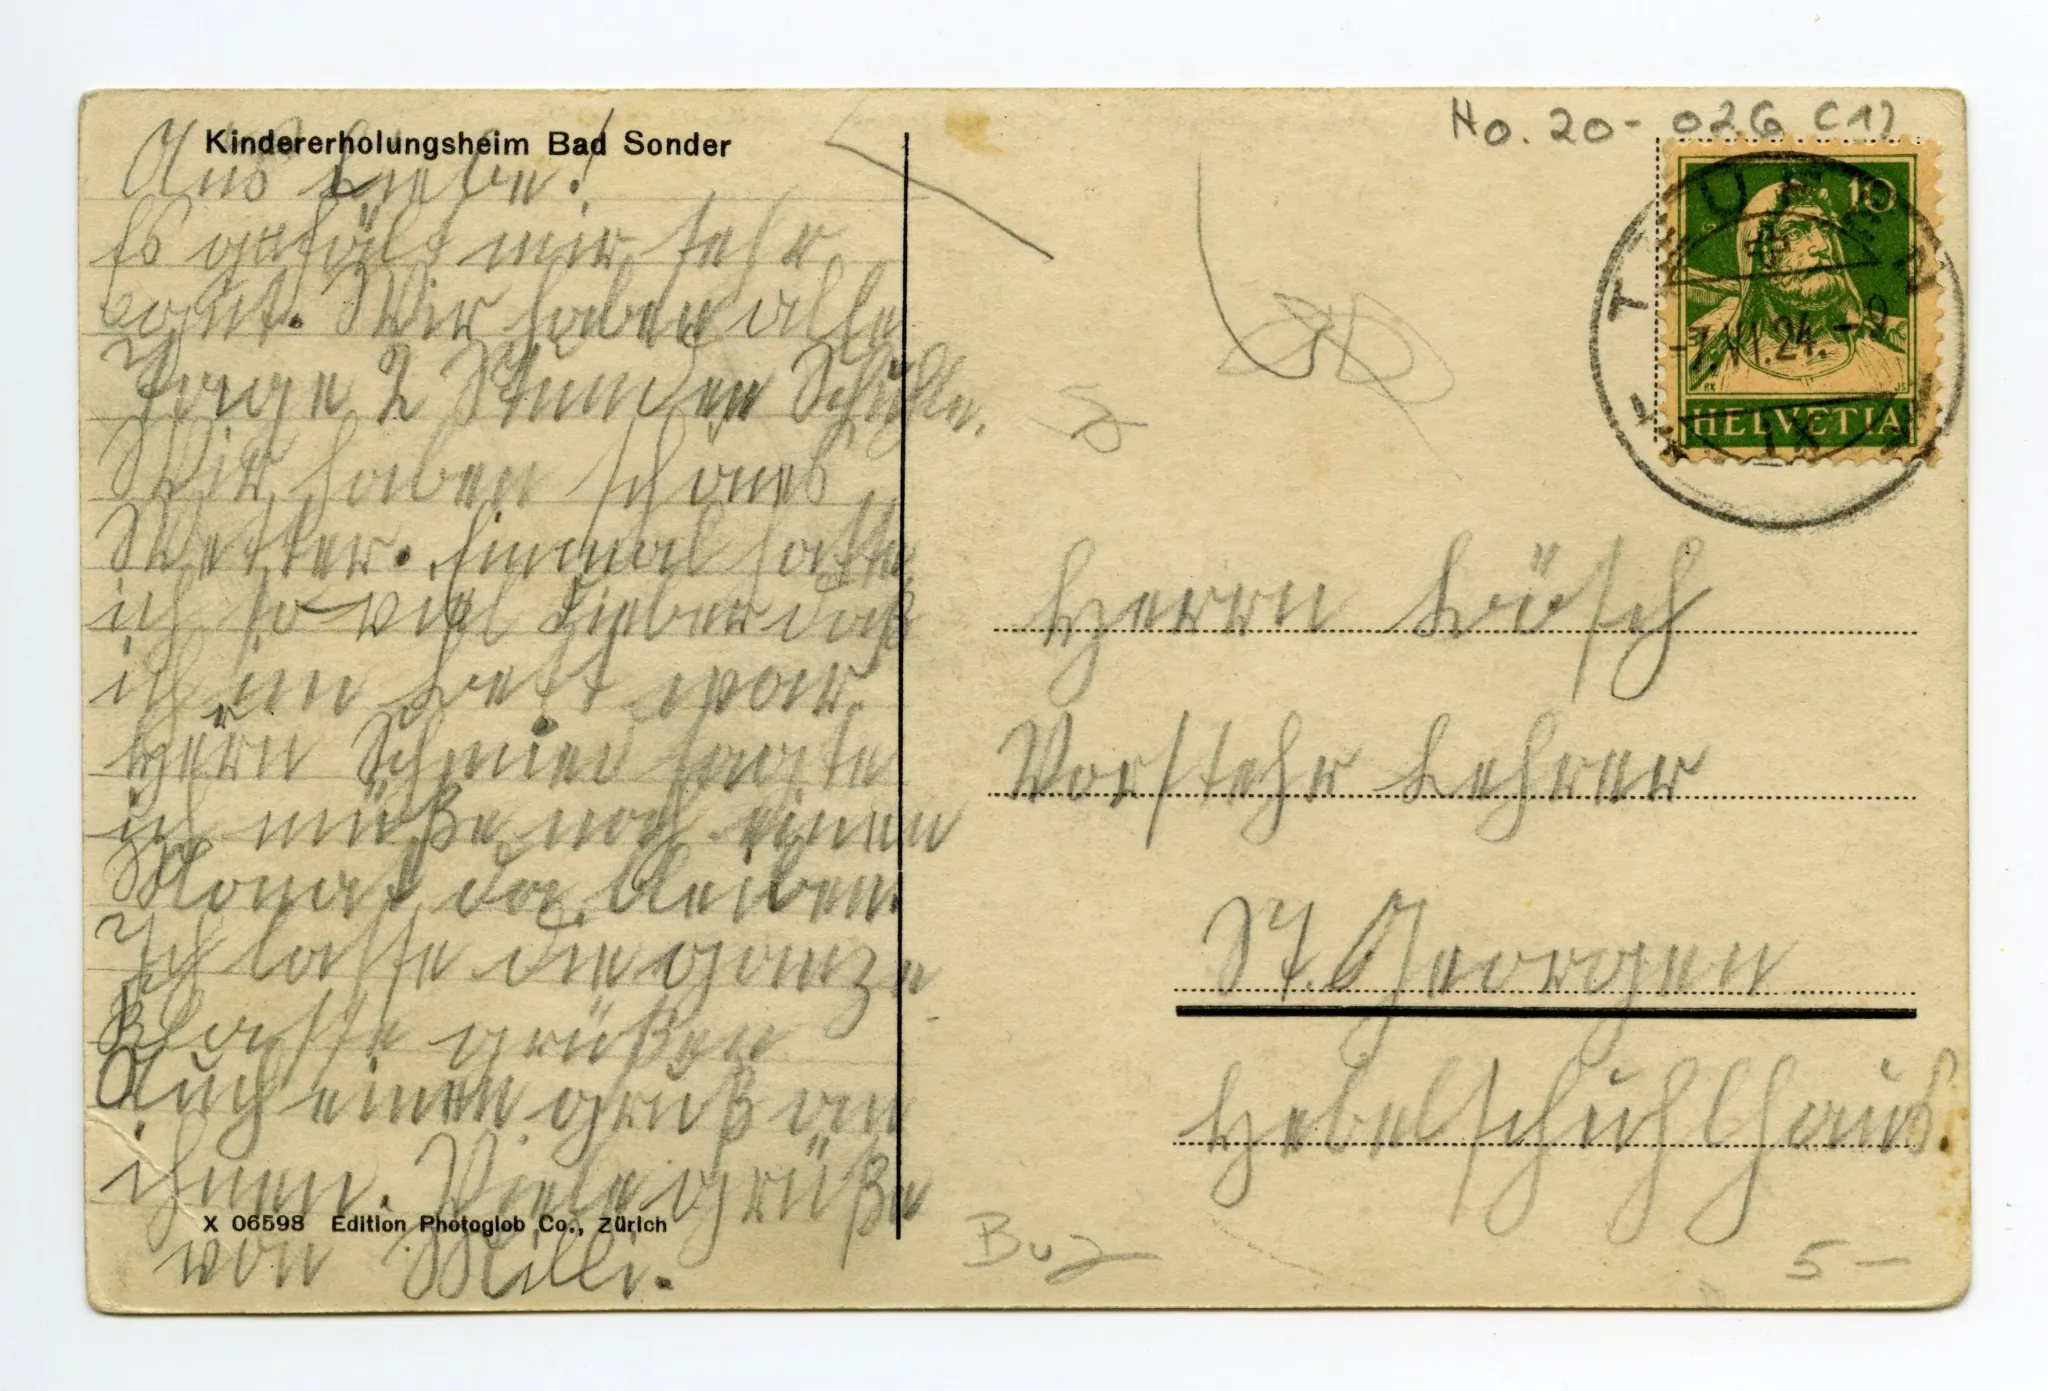 Kindererholungsheim Bad Sonder
Aus Liebe!
Es gefält mir sehr
gut. Wir haben alle
Tage 2 Stunden Schuhle.
Wir haben schönes
Wetter. Einmal hatte
ich so viel Fieber daß
ich im Bett war.
Herrn Schmied sagte
ich müße noch einen
Monat da bleiben
Ich lasse die ganze
Klasse grüßen
Auch einen gruß an
ihnen. Viele grüße
von Milli.
X 06598 Edition Photoglob Co., Zürich
No. 20-026 (1)
10
TEUFEN
-7.VI.24.-9
HELVETIA
Herrn Lösch
Vorstehr Lehrer
St. Georgen
Hebelschuhlhaus.
5-